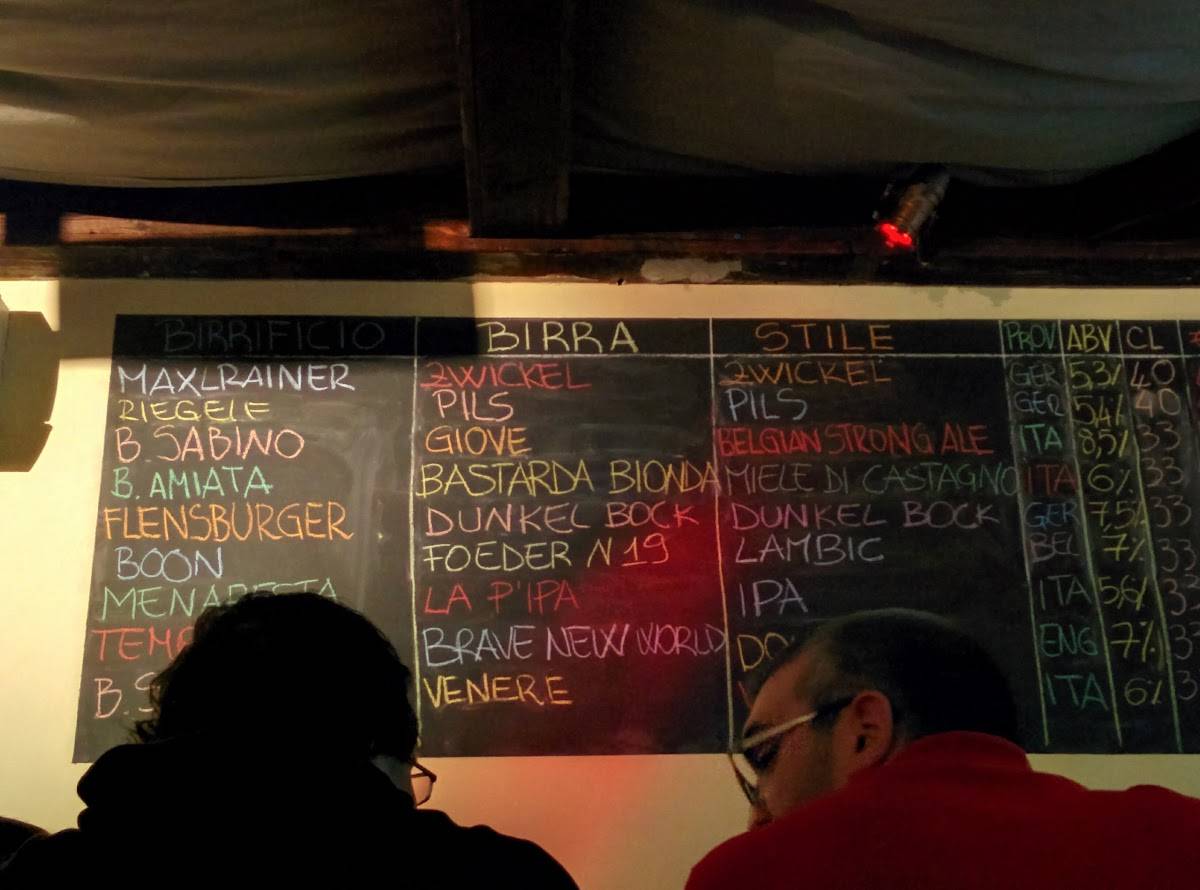 BIRRIFICIO BIRRA STILE PROV ABV CL
MAXLRAINER ZWICKEL ZWICKEL GER 5,3% 40
RIEGELE PILS PILS GER 5,4% 40
B. SABINO GIOVE BELGIAN STRONG ALE ITA 8,5% 33
B. AMIATA BASTARDA BIONDA MIELE DI CASTAGNO ITA 6% 33
FLENSBURGER DUNKEL BOCK DUNKEL BOCK GER 7,5% 33
BOON FOEDER N 19 LAMBIC BEL 7% 33
MENABESTA LA P'IPA IPA ITA 5,6%
BRAVE NEW WORLD ENG 7%
VENERE ITA 6%